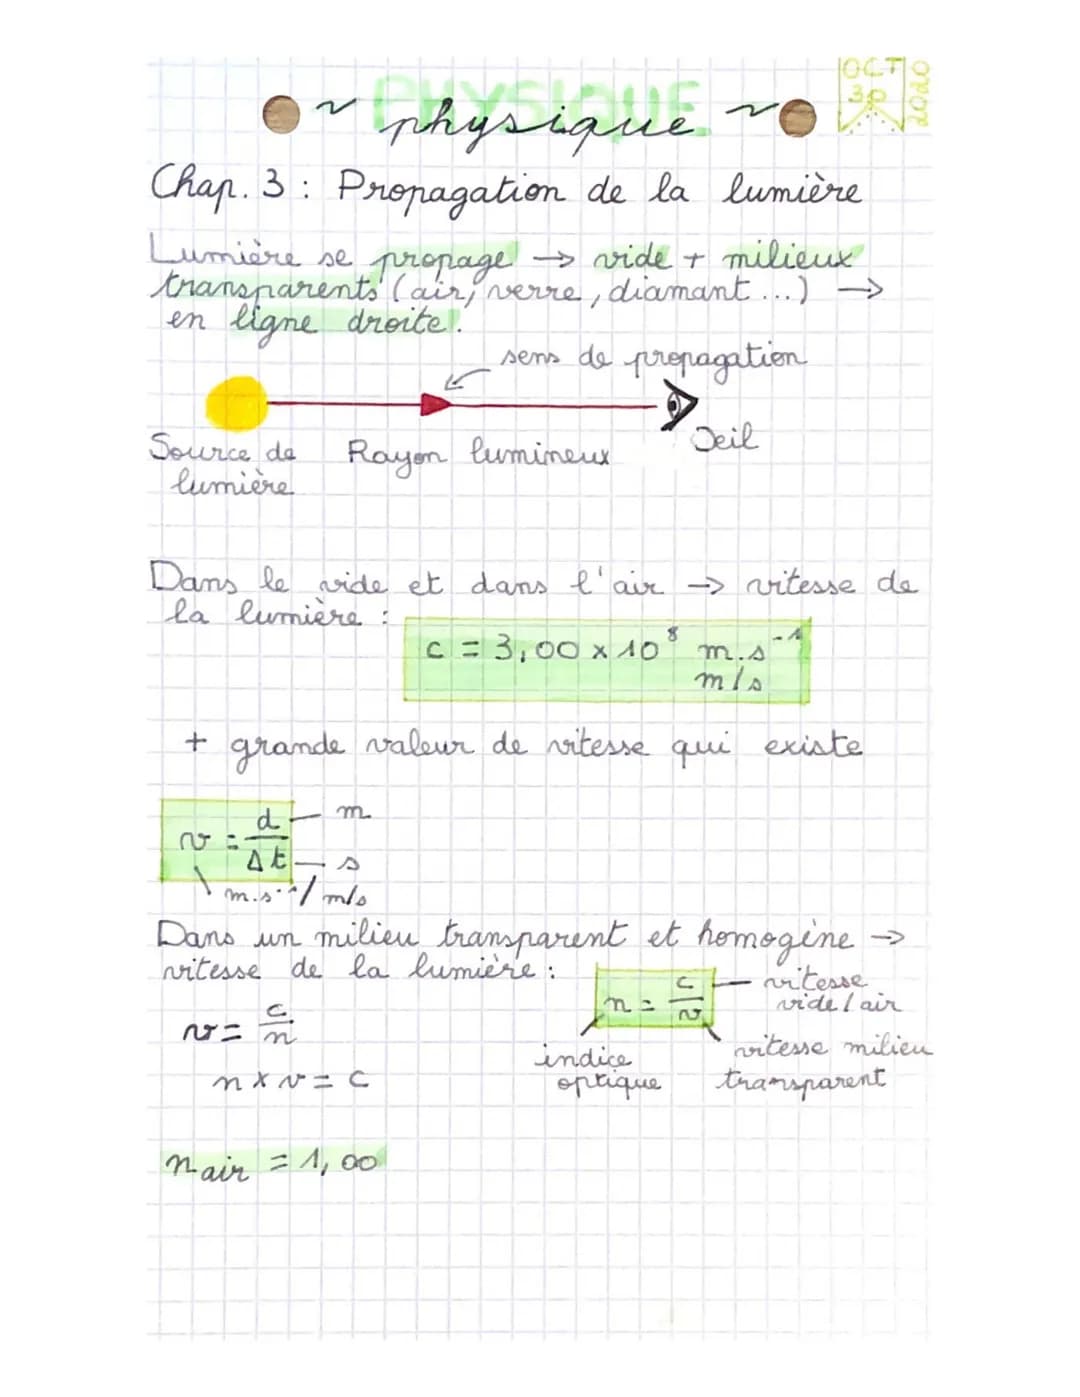 OCT
30
2020
PHYSIQUE
~ physique ~
Chap. 3 : Propagation de la lumière
Lumière se propage → vide + milieux
transparents (air, verre, diamant ...) →
en ligne droite.
sens de propagation
Source de
lumière
Rayon lumineux
Oeil
Dans le vide et dans l'air → vitesse de
la lumière :
c = 3,00 x 10⁸ m.s⁻¹
m/s
+ grande valeur de vitesse qui existe
v = d/Δt
m
s
m.s⁻¹/ m/s
Dans un milieu transparent et homogène →
vitesse de la lumière :
n = c/v
vitesse
vide / air
v = c/n
indice
optique
vitesse milieu
transparent
n x v = c
n air = 1,00